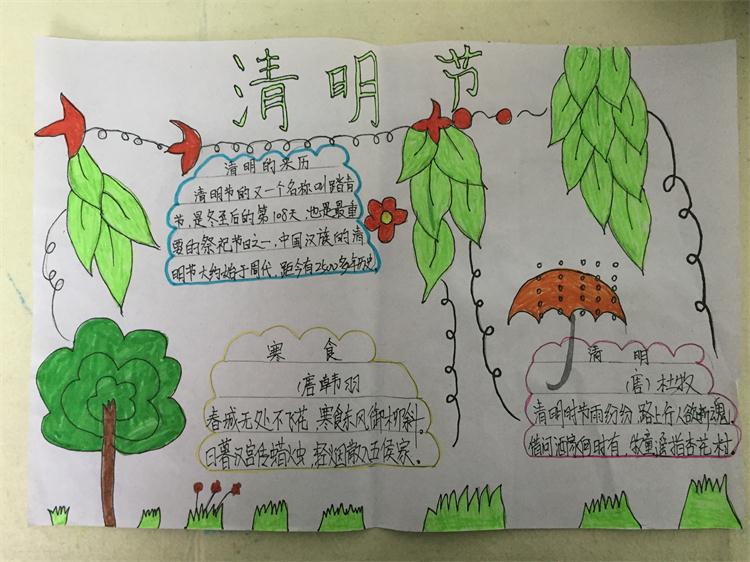 清明节
清明的来历
清明节的又一个名称叫踏青
节,是冬至后的第108天,也是最重
要的祭祝节日之一,中国汉族的清
明节大约始于周代,距今有2500多年历史。
寒食
(唐)韩羽
春城无处不飞花 寒食东风御柳斜。
日暮汉宫传蜡火虫,轻烟散入五侯家。
清明
(唐)杜牧
清明时节雨纷纷 路上行人欲断魂
借问酒家何时有,牧童遥指杏花村。